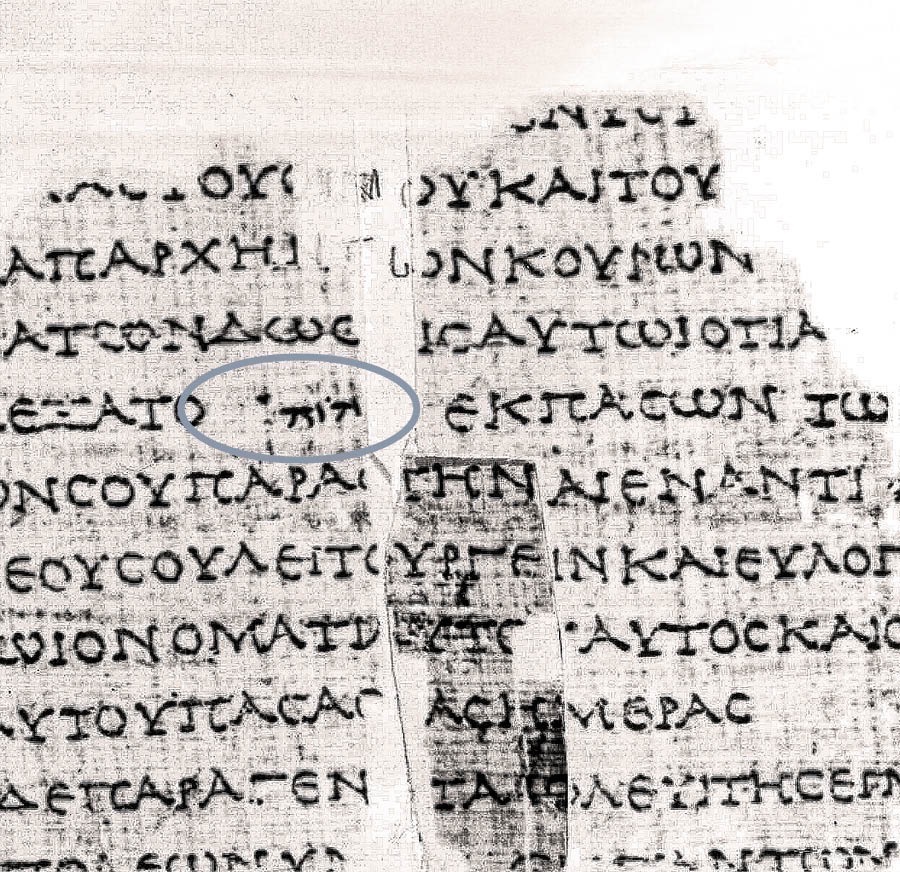 ΟΥ ΚΑΙ ΤΟΥ
ΑΠΑΡΧΗ ΩΝ ΚΟΥΡΩΝ
ΑΤΩΝ ΔΩCΕΙC ΑΥΤΩΙ ΟΤΙ Α
ΕΞΑΤΟ יהוה ΕΚ ΠΑCΩΝ ΤΩ
ΩΝ CΟΥ ΠΑΡΑCΤΗΝΑΙ ΕΝΑΝΤΙ
ΕΟΥ CΟΥ ΛΕΙΤΟΥΡΓΕΙΝ ΚΑΙ ΕΥΛΟΓ
ΤΩΙ ΟΝΟΜΑΤΙ ΑΥΤΟC ΚΑΙ Ο
ΑΥΤΟΥ ΠΑCΑC ΤΑC ΗΜΕΡΑC
ΔΕ ΠΑΡΑΓΕΝΗΤΑΙ Ο ΛΕΥΙΤΗC ΕΓ Μ